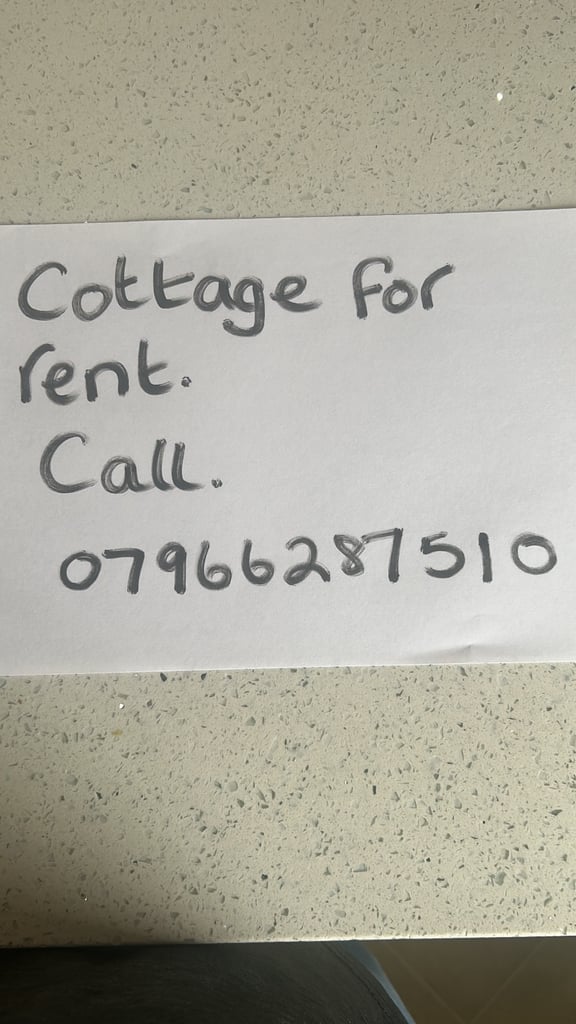 Cottage for
rent.
Call.
07966287510